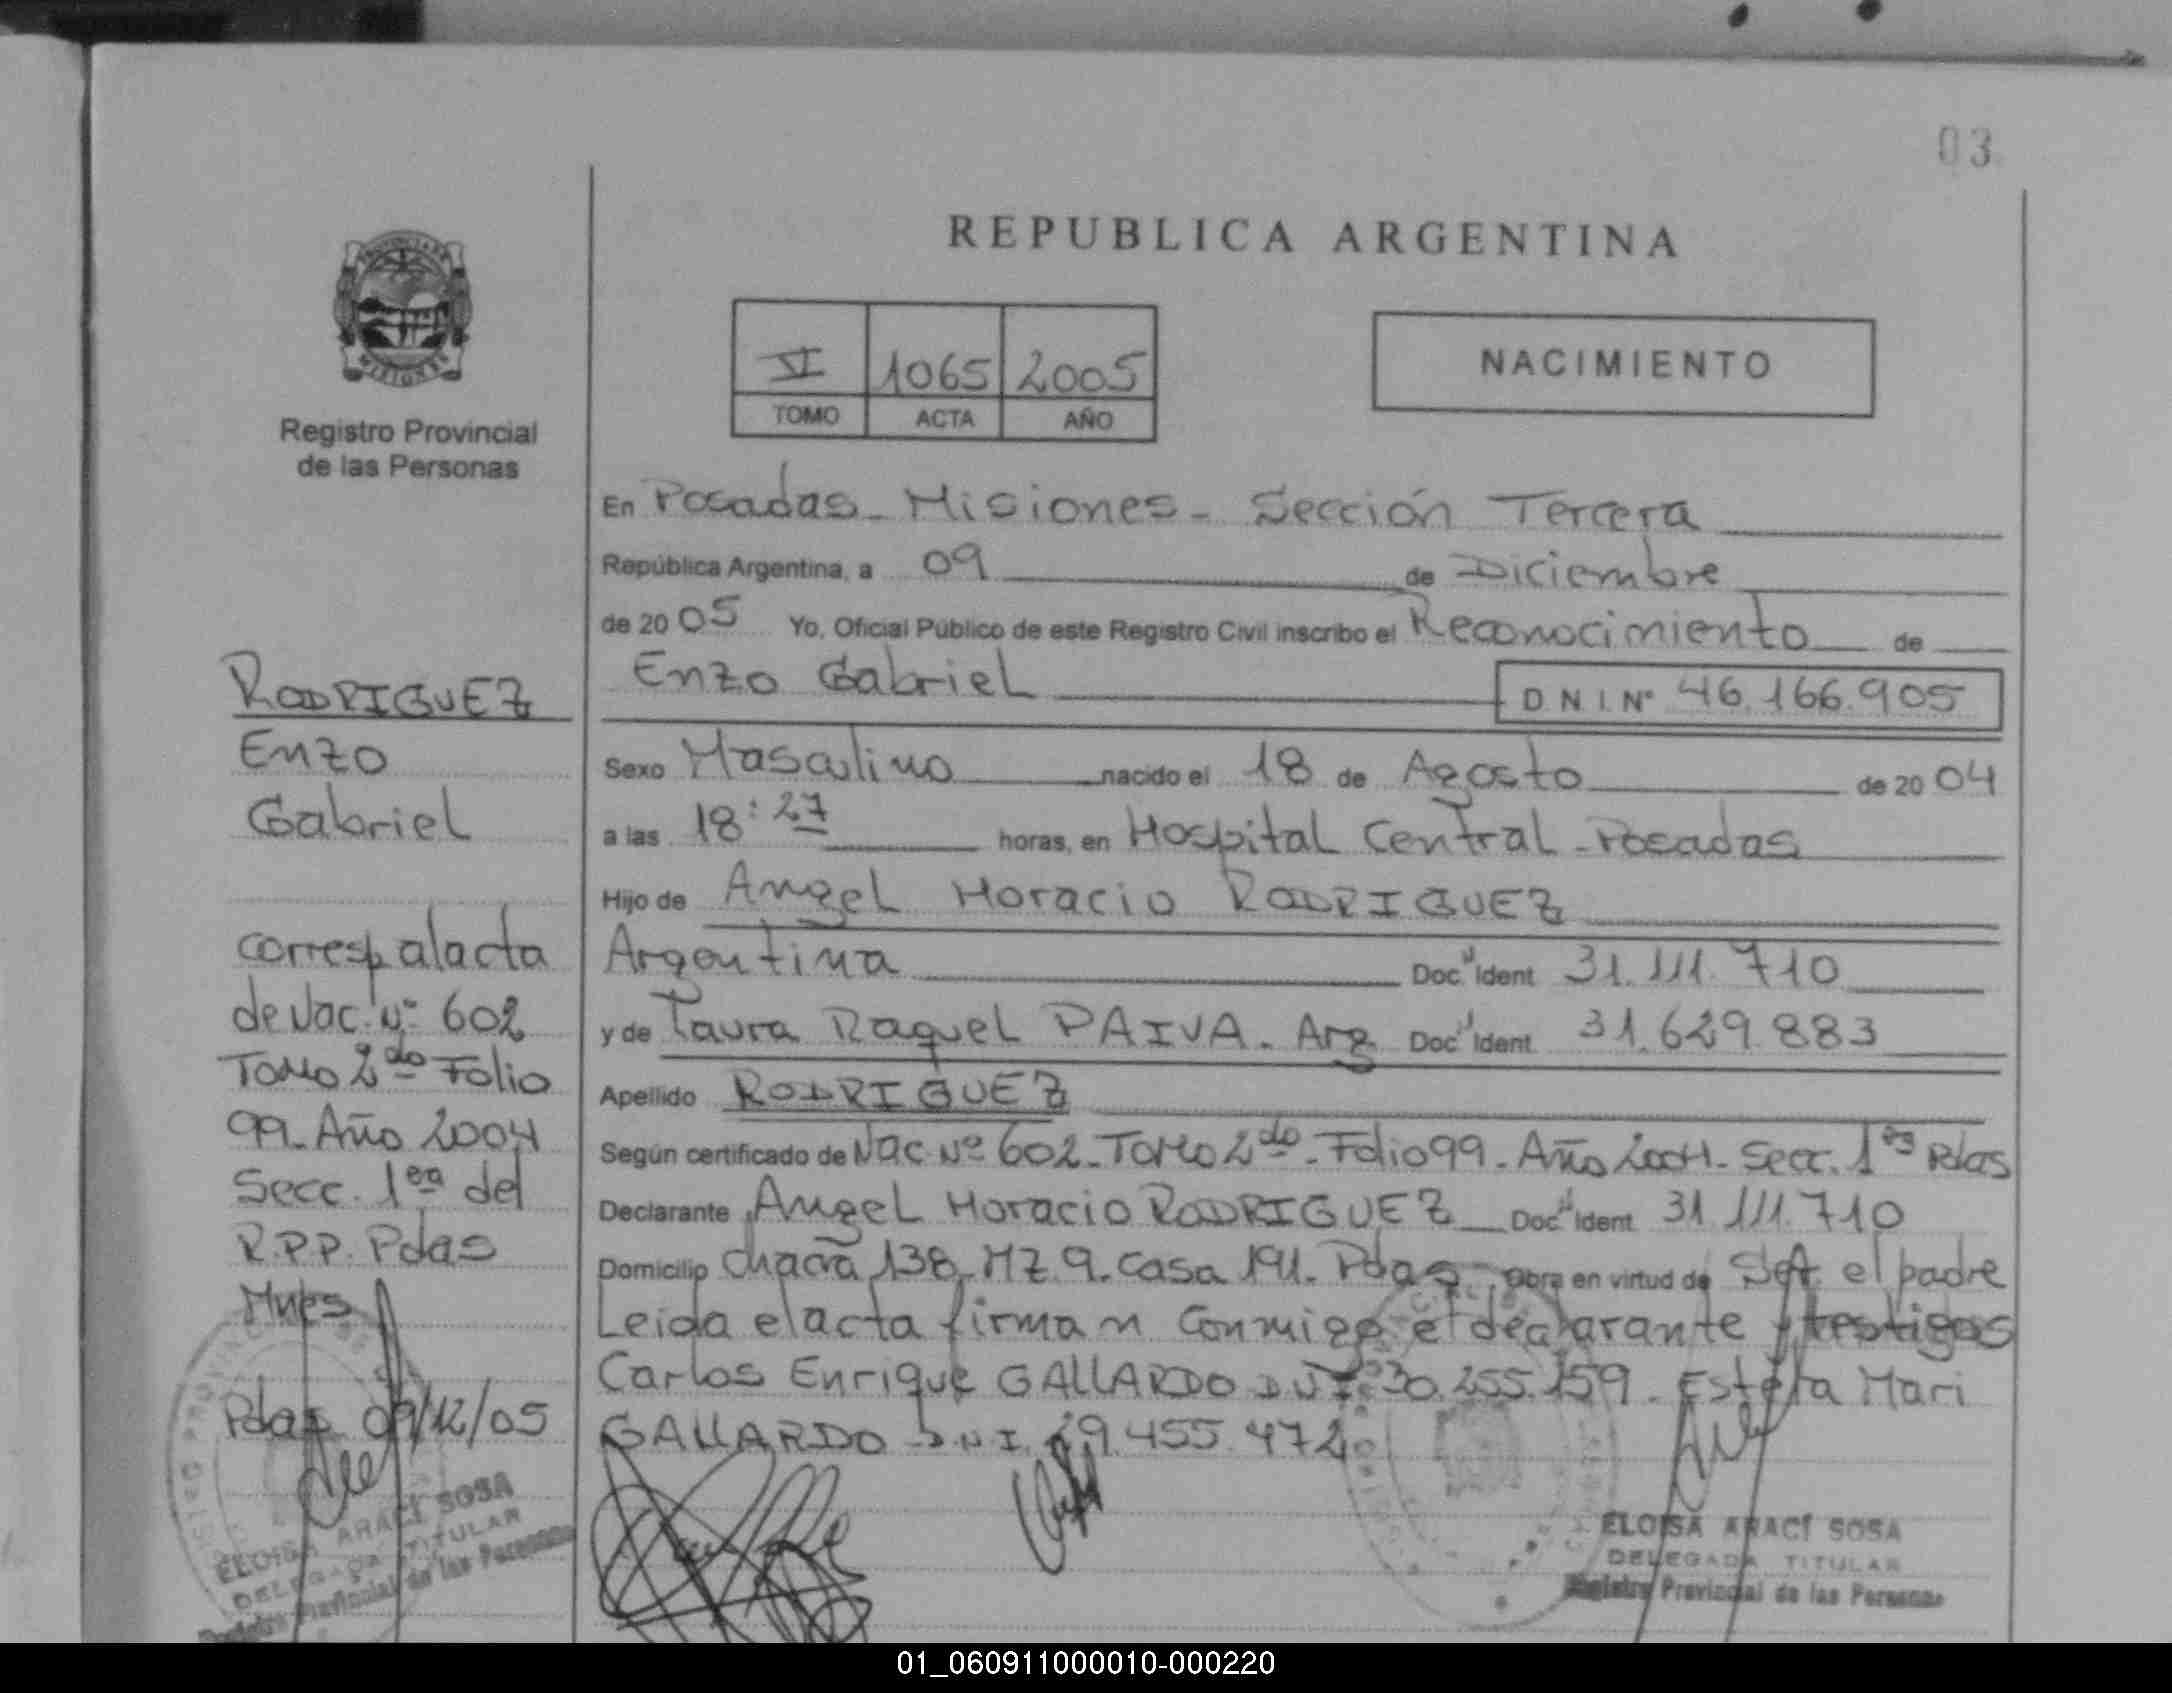 03
REPUBLICA ARGENTINA
PROVINCIA DE
MISIONES
Registro Provincial
de las Personas
VI 1065 2005
TOMO ACTA AÑO
NACIMIENTO
En Posadas - Misiones - Sección Tercera
República Argentina, a 09 de Diciembre
de 20 05 Yo, Oficial Público de este Registro Civil inscribo el Reconocimiento de
Enzo Gabriel D N I. Nº 46.166.905
Sexo Masculino nacido el 18 de Agosto de 20 04
a las 18:27 horas, en Hospital Central - Posadas
Hijo de Angel Horacio RODRIGUEZ
Argentina Doc. Ident 31.111.710
y de Laura Raquel PAIVA. Arg Doc. Ident. 31.629.883
Apellido RODRIGUEZ
Según certificado de Nac. Nº 602 - Tomo 2do - Folio 99 - Año 2004 - Secc. 1ra Pdas
Declarante Angel Horacio RODRIGUEZ Doc. Ident. 31.111.710
Domicilio Chacra 138. MZ 9. Casa 191. Pdas. Obra en virtud de Ser el padre
Leida el acta firman conmigo el declarante y testigos
Carlos Enrique GALLARDO DNI 30.255.159 - Estela Mari
GALLARDO D.N.I. 29.455.472
RODRIGUEZ
Enzo
Gabriel
corresp al acta
de Nac. Nº 602
Tomo 2do Folio
99 - Año 2004
Secc. 1ea del
R.P.P. Pdas
Mnes
Pdas 09/12/05
ELOISA ARACÍ SOSA
DELEGADA TITULAR
Registro Provincial de las Personas
ELOISA ARACÍ SOSA
DELEGADA TITULAR
Registro Provincial de las Personas
01_060911000010-000220